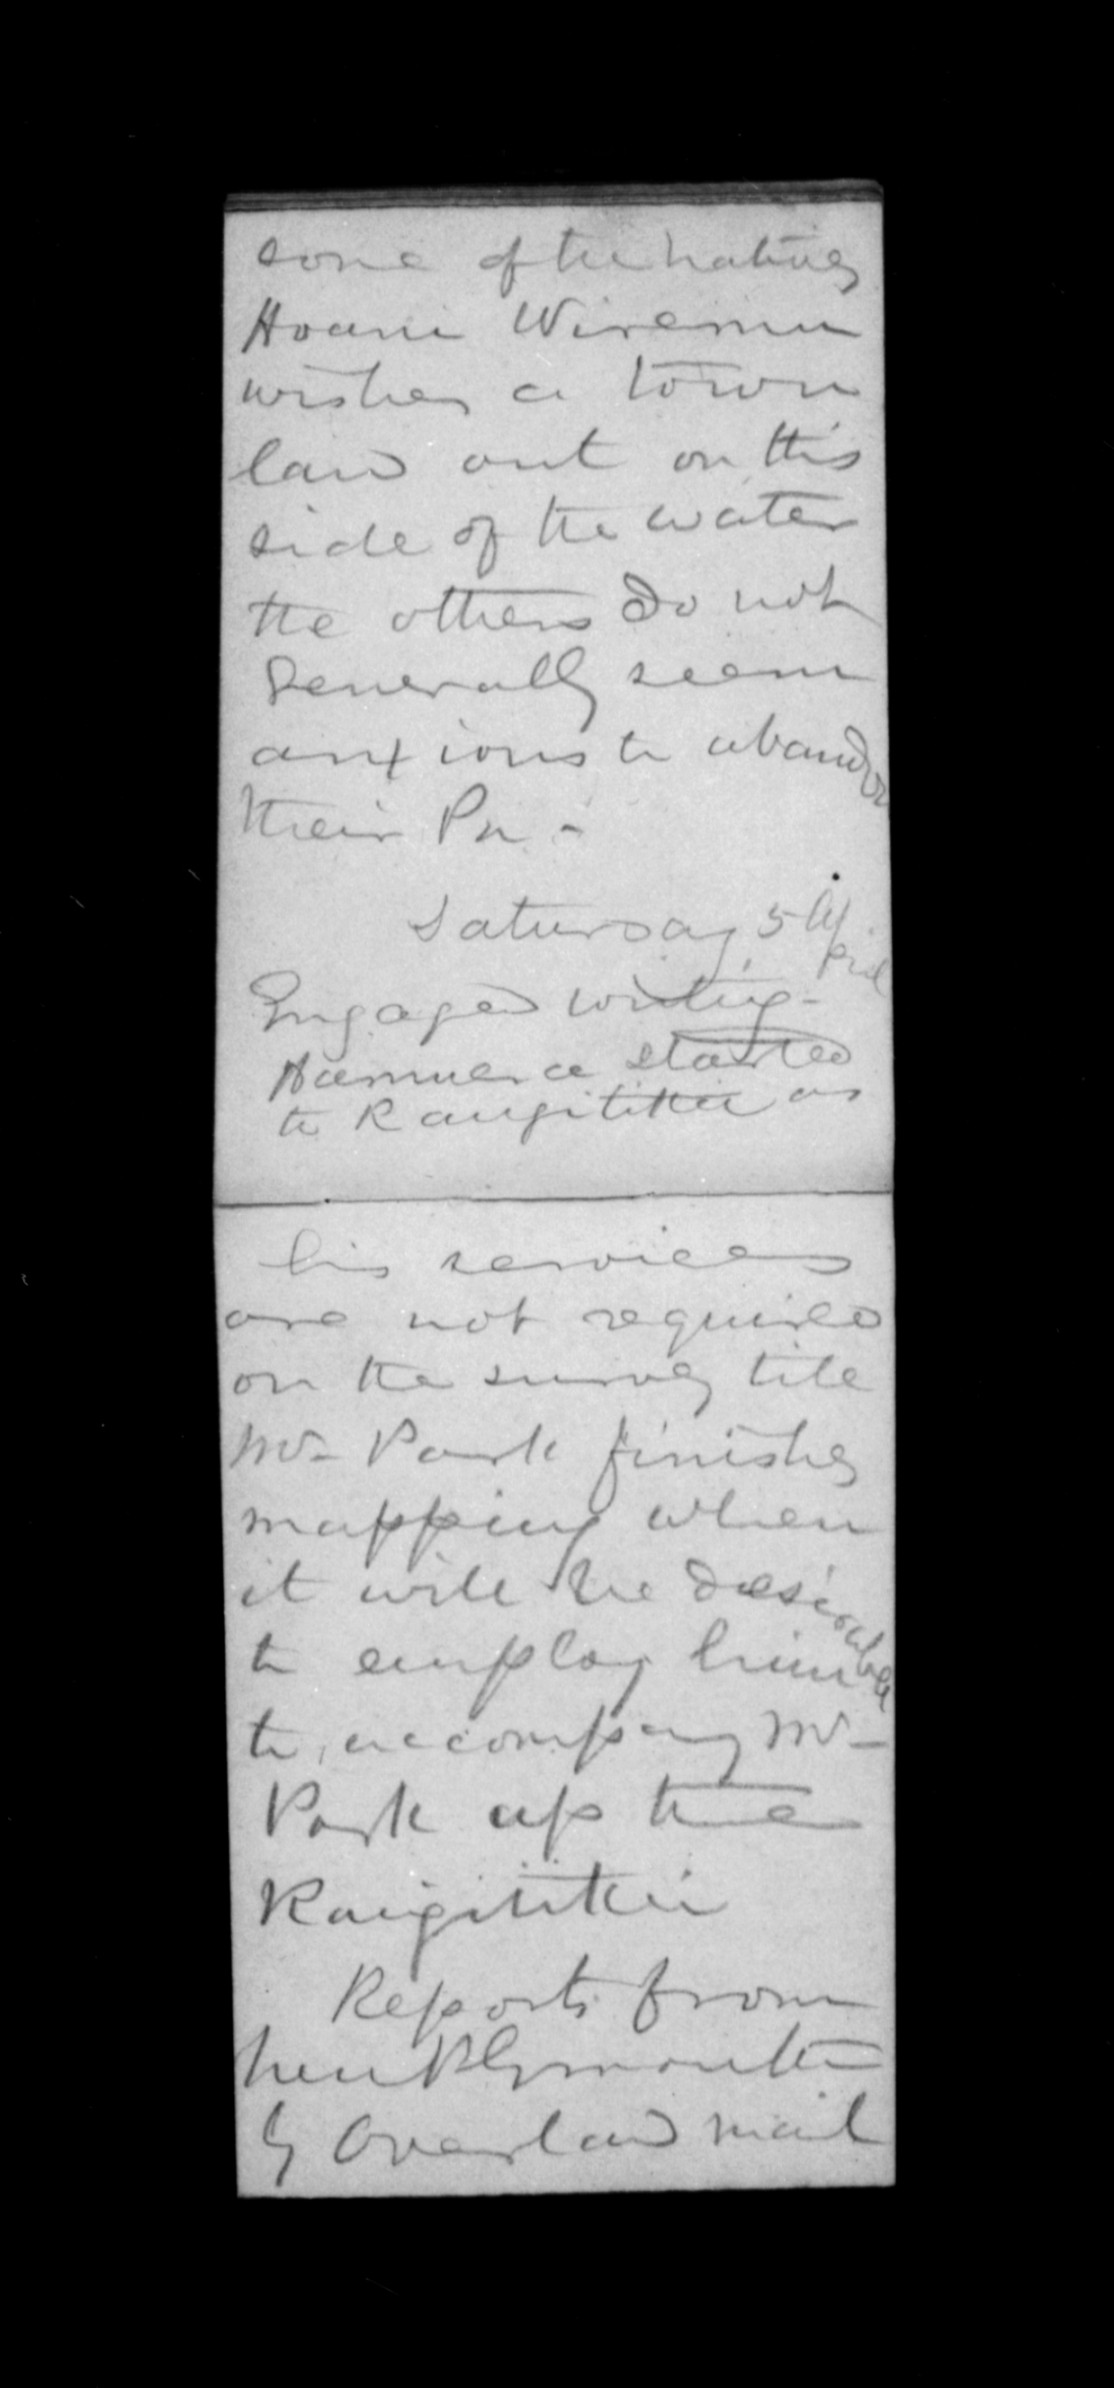 some of the natives
Hoani Wiremu
wishes a town
laid out on this
side of the water
the others do not
generally seem
anxious to abandon
their Pa -
Saturday, 5 April
Engaged writing -
started
to Rangitikei as
his services
are not required
on the survey till
Mr - Park finishes
mapping when
it will be desirable
to employ him
to accompany Mr -
Park up the
Rangitikei
Reports from
New Plymouth
by Overland mail